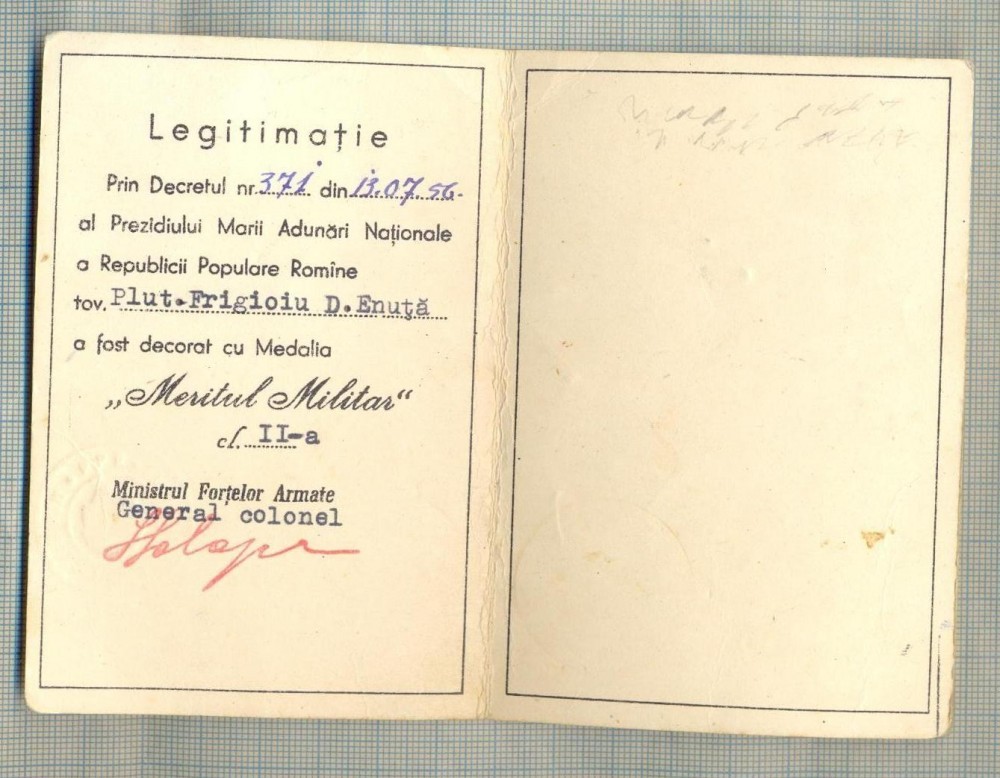 Legitimație
Prin Decretul nr. 371 din 13.07.56.
al Prezidiului Marii Adunări Naționale
a Republicii Populare Romîne
tov. Plut.Frigioiu D.Enuţă
a fost decorat cu Medalia
„Meritul Militar“
cl. II-a
Ministrul Forţelor Armate
General colonel